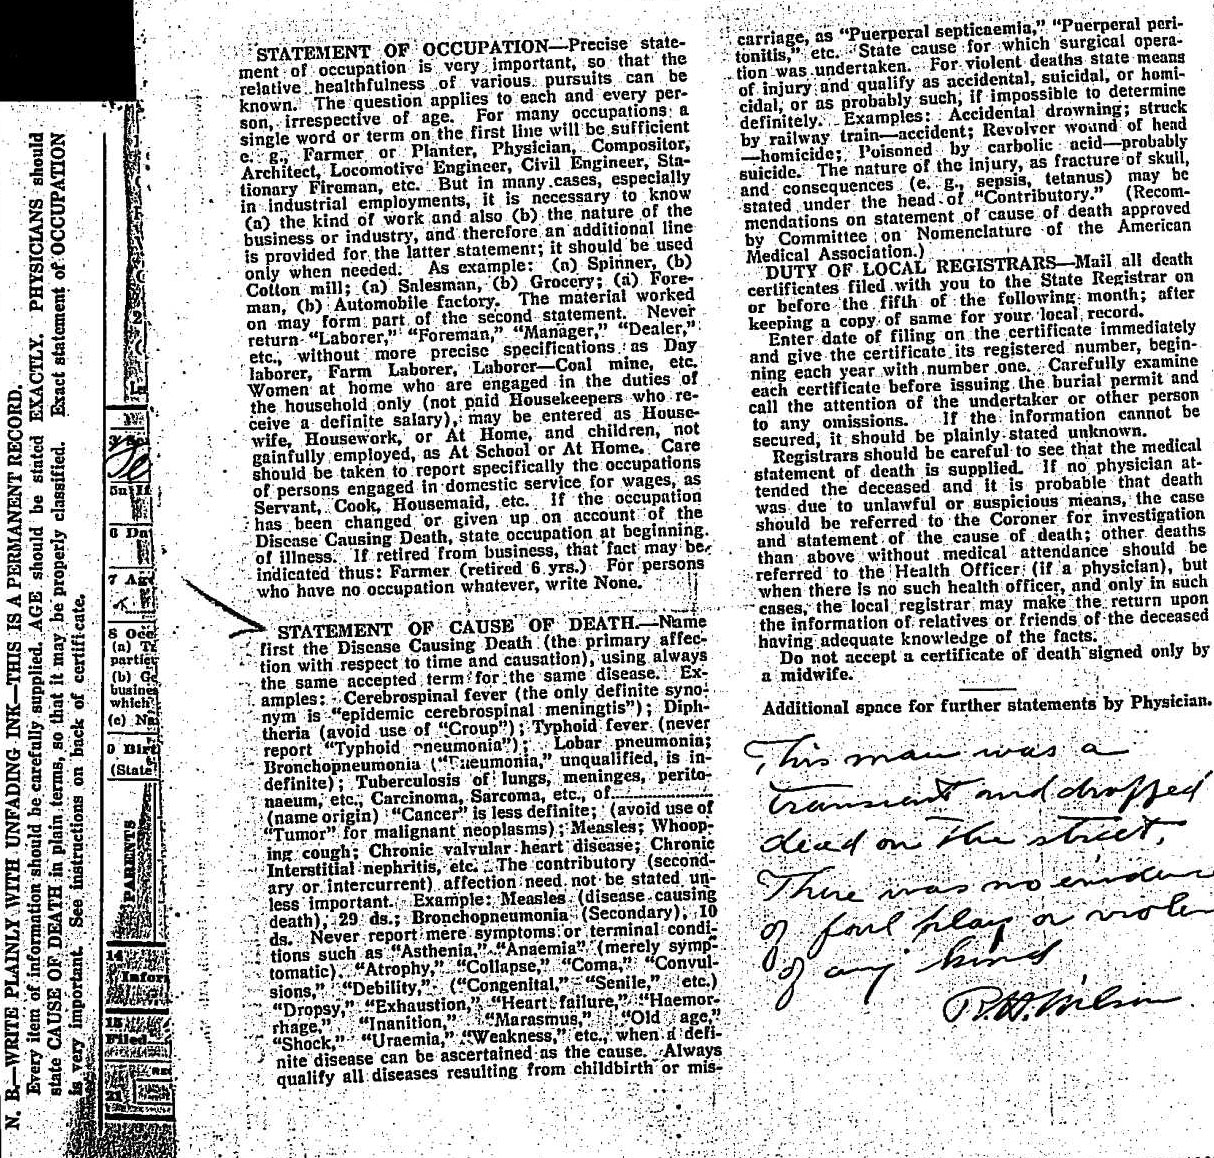 N. B.—WRITE PLAINLY WITH UNFADING INK—THIS IS A PERMANENT RECORD.
Every item of information should be carefully supplied. AGE should be stated EXACTLY. PHYSICIANS should
state CAUSE OF DEATH in plain terms, so that it may be properly classified. Exact statement of OCCUPATION
is very important. See instructions on back of certificate.
5a If
6 Da
7 Ag
8 Occ
(a) Tr
particu
(b) Ge
busines
which
(c) Na
9 Birt
(State
PARENTS
14
Infor
15
Filed
STATEMENT OF OCCUPATION—Precise state-
ment of occupation is very important, so that the
relative healthfulness of various pursuits can be
known. The question applies to each and every per-
son, irrespective of age. For many occupations a
single word or term on the first line will be sufficient
e. g., Farmer or Planter, Physician, Compositor,
Architect, Locomotive Engineer, Civil Engineer, Sta-
tionary Fireman, etc. But in many cases, especially
in industrial employments, it is necessary to know
(a) the kind of work and also (b) the nature of the
business or industry, and therefore an additional line
is provided for the latter statement; it should be used
only when needed. As example: (a) Spinner, (b)
Cotton mill; (a) Salesman, (b) Grocery; (a) Fore-
man, (b) Automobile factory. The material worked
on may form part of the second statement. Never
return "Laborer," "Foreman," "Manager," "Dealer,"
etc., without more precise specifications as Day
laborer, Farm Laborer, Laborer—Coal mine, etc.
Women at home who are engaged in the duties of
the household only (not paid Housekeepers who re-
ceive a definite salary), may be entered as House-
wife, Housework, or At Home, and children, not
gainfully employed, as At School or At Home. Care
should be taken to report specifically the occupations
of persons engaged in domestic service for wages, as
Servant, Cook, Housemaid, etc. If the occupation
has been changed or given up on account of the
Disease Causing Death, state occupation at beginning
of illness. If retired from business, that fact may be
indicated thus: Farmer (retired 6 yrs.) For persons
who have no occupation whatever, write None.
STATEMENT OF CAUSE OF DEATH.—Name
first the Disease Causing Death (the primary affec-
tion with respect to time and causation), using always
the same accepted term for the same disease. Ex-
amples: Cerebrospinal fever (the only definite syno-
nym is "epidemic cerebrospinal meningtis"); Diph-
theria (avoid use of "Croup"); Typhoid fever (never
report "Typhoid pneumonia"); Lobar pneumonia;
Bronchopneumonia ("Pneumonia," unqualified, is in-
definite); Tuberculosis of lungs, meninges, perito-
naeum, etc., Carcinoma, Sarcoma, etc., of..................
(name origin) "Cancer" is less definite; (avoid use of
"Tumor" for malignant neoplasms); Measles; Whoop-
ing cough; Chronic valvular heart disease; Chronic
Interstitial nephritis, etc. The contributory (second-
ary or intercurrent) affection need not be stated un-
less important. Example: Measles (disease causing
death), 29 ds.; Bronchopneumonia (Secondary), 10
ds. Never report mere symptoms or terminal condi-
tions such as "Asthenia," "Anaemia" (merely symp-
tomatic), "Atrophy," "Collapse," "Coma," "Convul-
sions," "Debility," ("Congenital," "Senile," etc.)
"Dropsy," "Exhaustion," "Heart failure," "Haemor-
rhage," "Inanition," "Marasmus," "Old age,"
"Shock," "Uraemia," "Weakness," etc., when a defi-
nite disease can be ascertained as the cause. Always
qualify all diseases resulting from childbirth or mis-
carriage, as "Puerperal septicaemia," "Puerperal peri-
tonitis," etc. State cause for which surgical opera-
tion was undertaken. For violent deaths state means
of injury and qualify as accidental, suicidal, or homi-
cidal, or as probably such, if impossible to determine
definitely. Examples: Accidental drowning; struck
by railway train—accident; Revolver wound of head
—homicide; Poisoned by carbolic acid—probably
suicide. The nature of the injury, as fracture of skull,
and consequences (e. g., sepsis, tetanus) may be
stated under the head of "Contributory." (Recom-
mendations on statement of cause of death approved
by Committee on Nomenclature of the American
Medical Association.)
DUTY OF LOCAL REGISTRARS—Mail all death
certificates filed with you to the State Registrar on
or before the fifth of the following month; after
keeping a copy of same for your local record.
Enter date of filing on the certificate immediately
and give the certificate its registered number, begin-
ning each year with number one. Carefully examine
each certificate before issuing the burial permit and
call the attention of the undertaker or other person
to any omissions. If the information cannot be
secured, it should be plainly stated unknown.
Registrars should be careful to see that the medical
statement of death is supplied. If no physician at-
tended the deceased and it is probable that death
was due to unlawful or suspicious means, the case
should be referred to the Coroner for investigation
and statement of the cause of death; other deaths
than above without medical attendance should be
referred to the Health Officer (if a physician), but
when there is no such health officer, and only in such
cases, the local registrar may make the return upon
the information of relatives or friends of the deceased
having adequate knowledge of the facts.
Do not accept a certificate of death signed only by
a midwife.
Additional space for further statements by Physician.
This man was a
transient and dropped
dead on the street.
There was no evidence
of foul play or violen
of any kind
R. H. Wilson